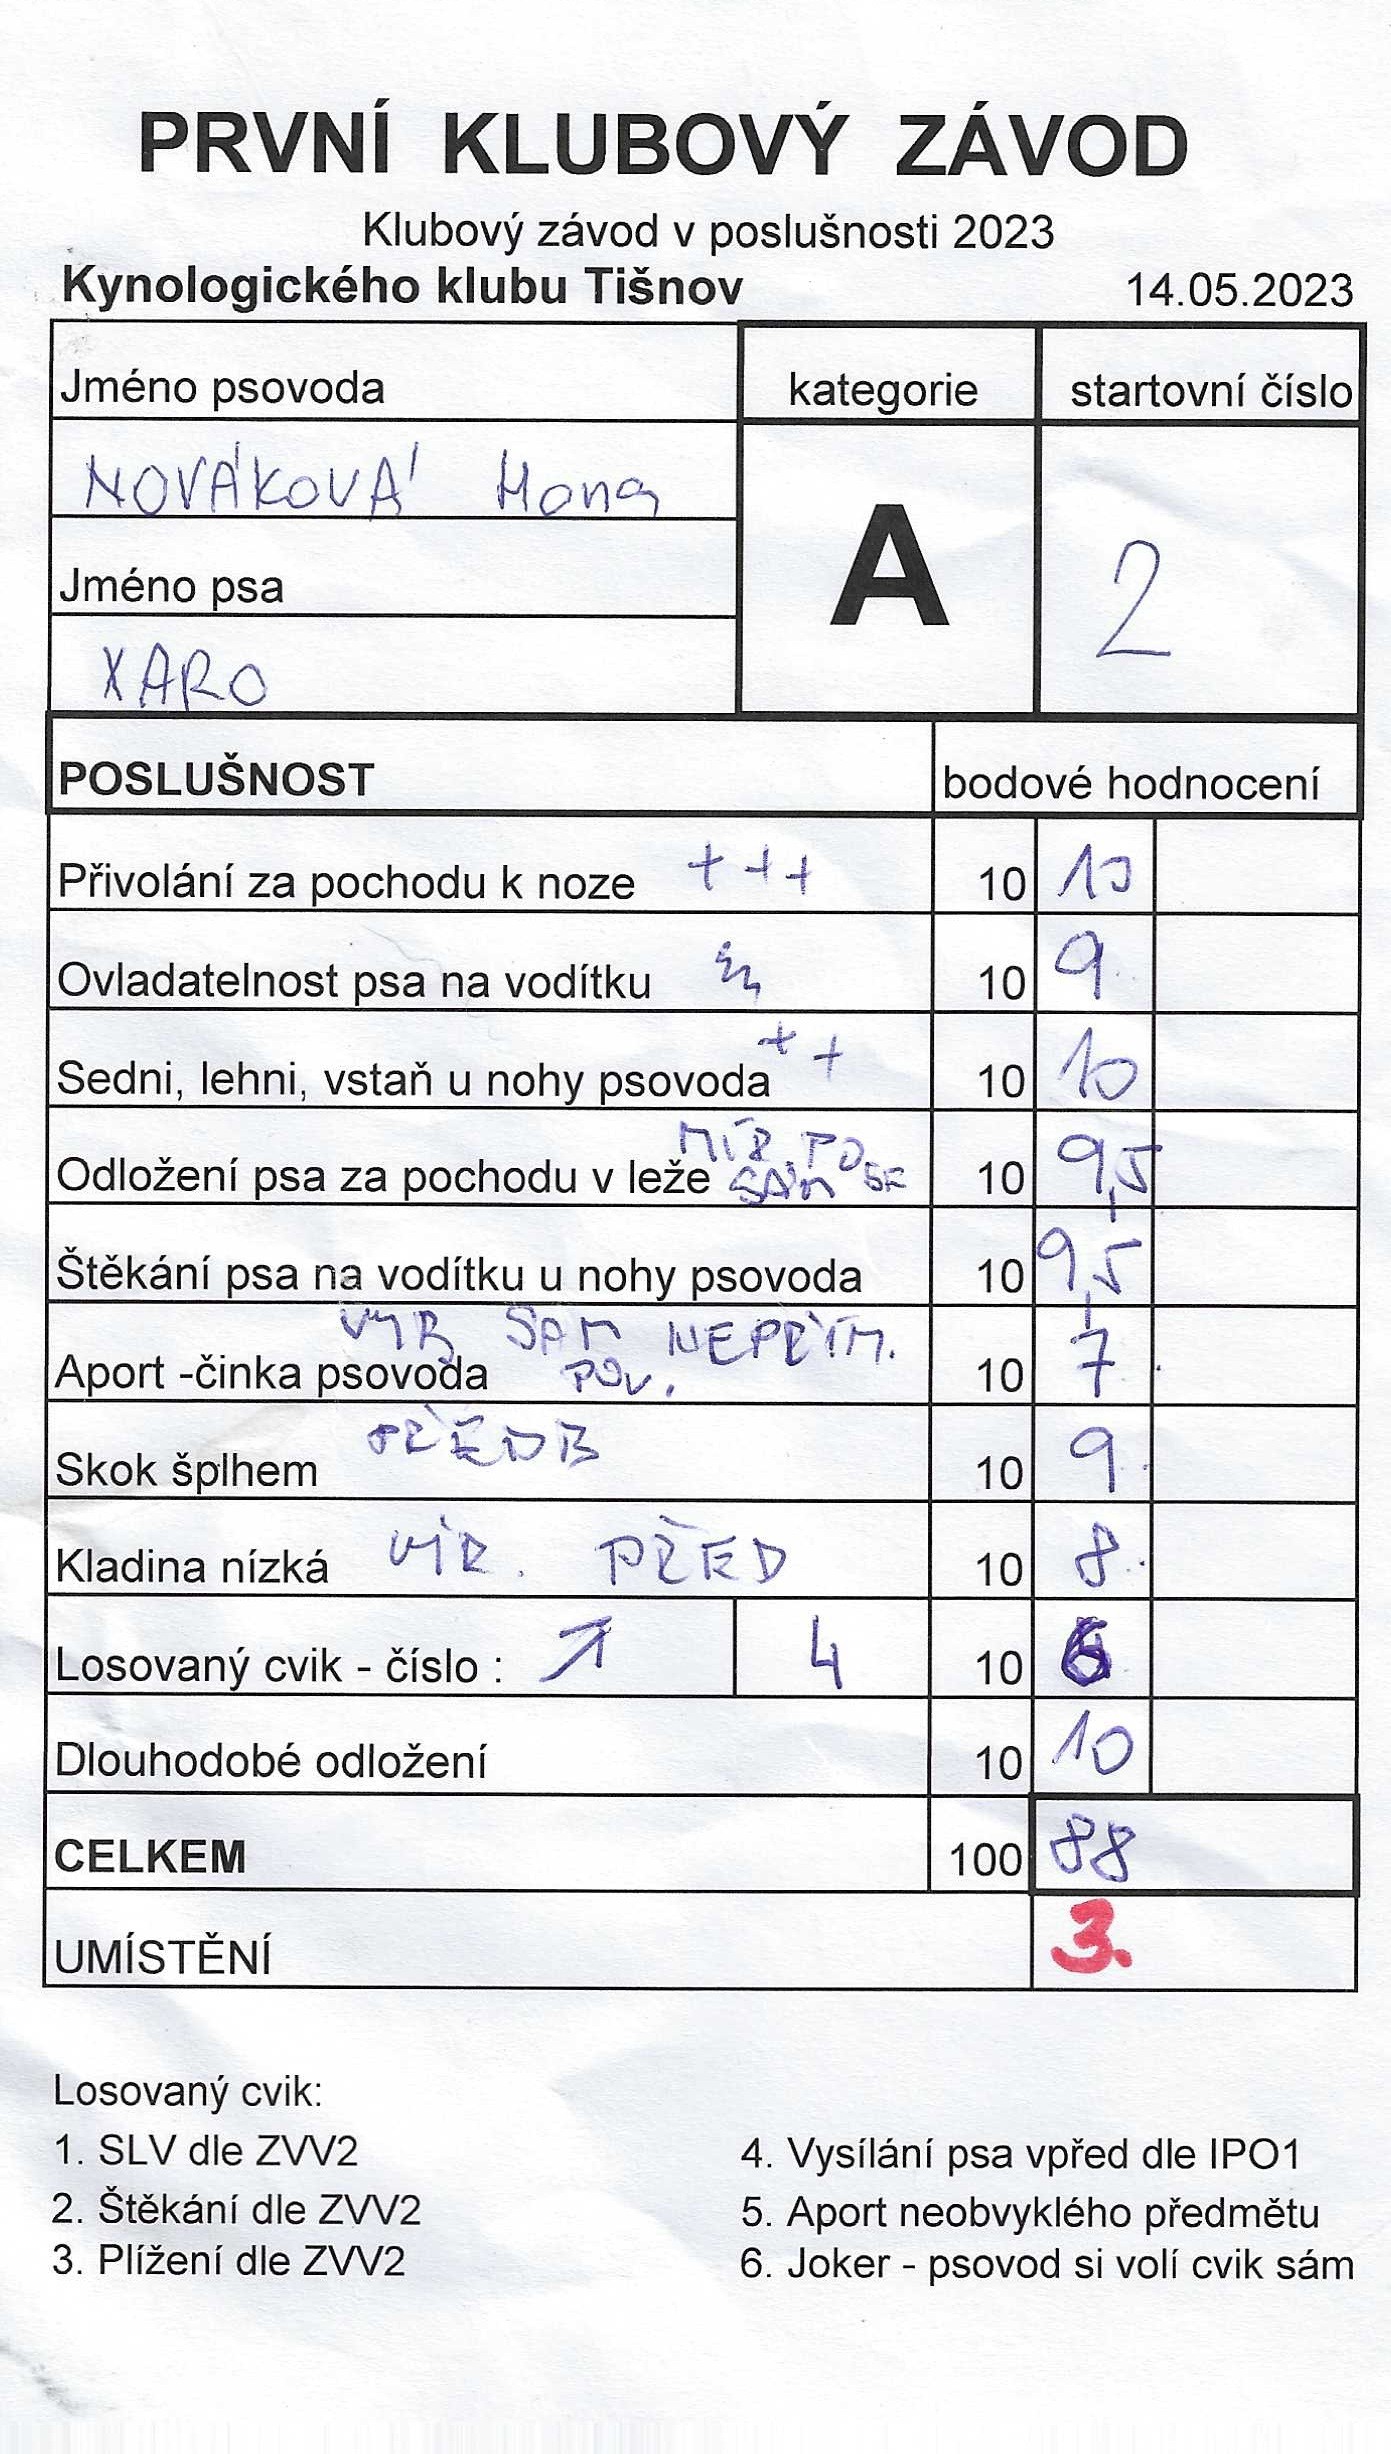 PRVNÍ KLUBOVÝ ZÁVOD
Klubový závod v poslušnosti 2023
Kynologického klubu Tišnov 14.05.2023
Jméno psovoda kategorie startovní číslo
NOVÁKOVÁ
A 2
Jméno psa
XARO
POSLUŠNOST bodové hodnocení
Přivolání za pochodu k noze +++ 10 10
Ovladatelnost psa na vodítku 10 9
Sedni, lehni, vstaň u nohy psovoda ++ 10 10
Odložení psa za pochodu v leže 10 9,5
Štěkání psa na vodítku u nohy psovoda 10 9,5
VYB SÁM NEPŘÍM.
Aport -činka psovoda POV. 10 7
Skok šplhem 10 9
Kladina nízká PŘED 10 8
Losovaný cvik - číslo : 4 10 6
Dlouhodobé odložení 10 10
CELKEM 100 88
UMÍSTĚNÍ 3.
Losovaný cvik:
1. SLV dle ZVV2 4. Vysílání psa vpřed dle IPO1
2. Štěkání dle ZVV2 5. Aport neobvyklého předmětu
3. Plížení dle ZVV2 6. Joker - psovod si volí cvik sám